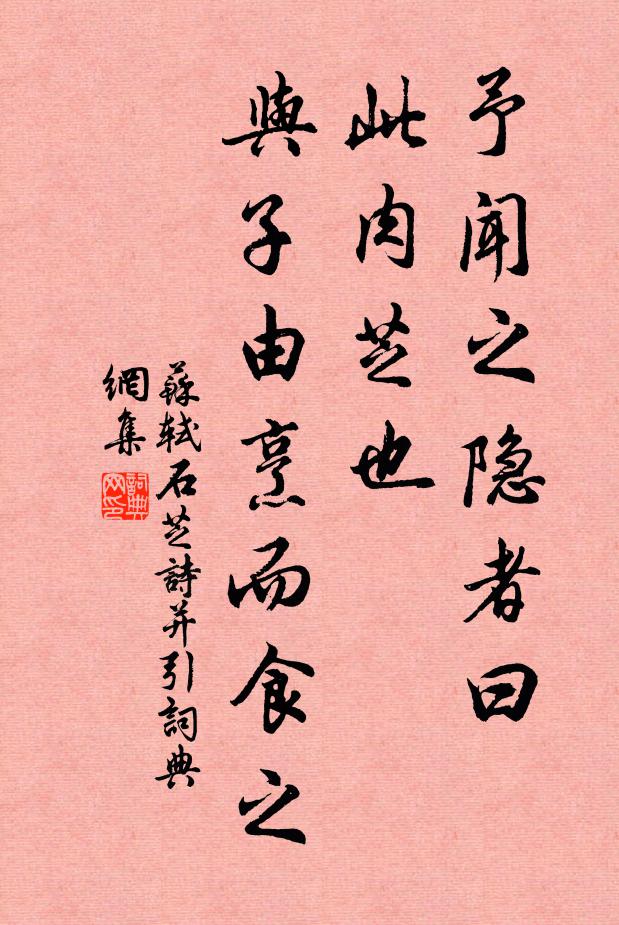 予聞之隐者曰
此肉芝也
與子由烹而食之
蘇軾石芝詩并引詞典
網集
詞典
网印